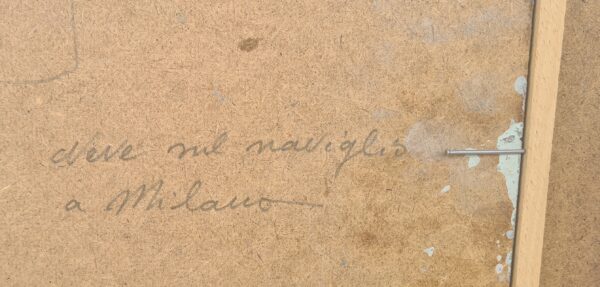 neve sul naviglio
a Milano